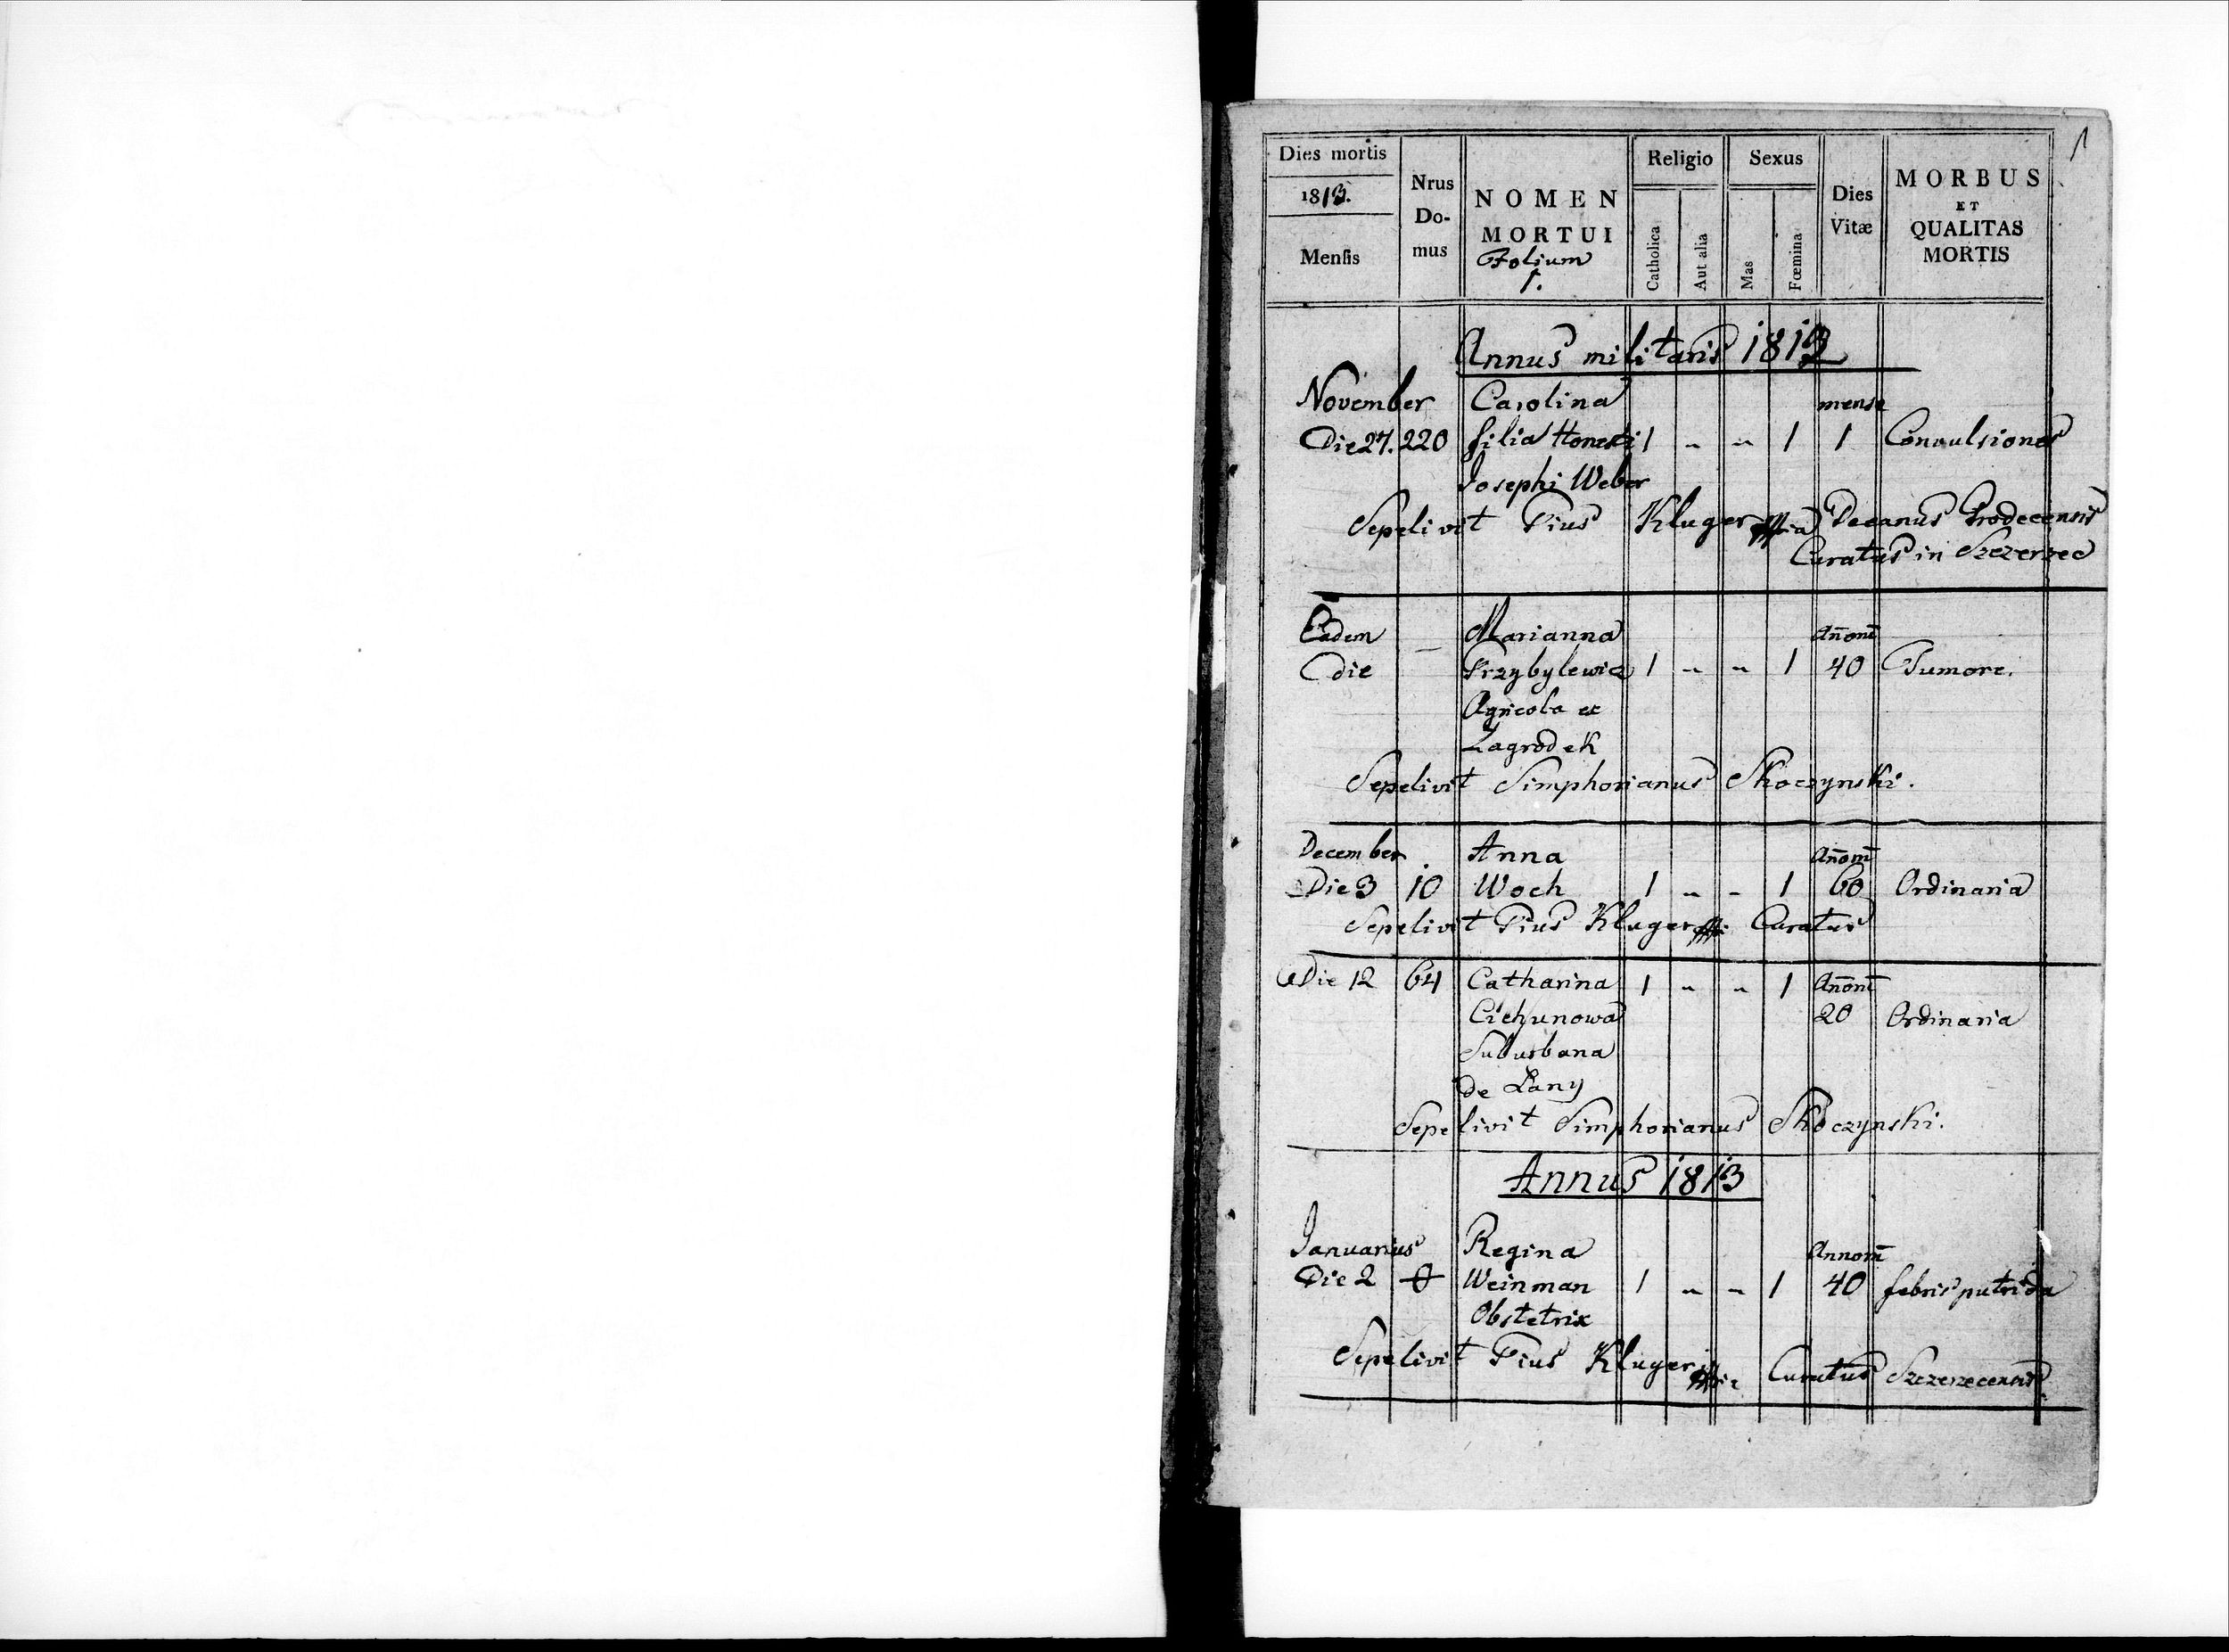 1
Dies mortis
1813.
Mensis
Nrus Do-mus
NOMEN MORTUI
Folium
1.
Religio
Catholica
Aut alia
Sexus
Mas
Fœmina
Dies Vitæ
MORBUS
ET
QUALITAS
MORTIS
Annus militaris 1813
November Carolina mense
Die 27. 220 filia Honesti 1 " " 1 1 Convulsiones
Josephi Weber
Sepelivit Pius Kluger Decanus Grodecensis
Curatus in Szczerzec
Eadem Marianna Annorũ
die — Przybylewicz 1 " " 1 40 Tumore.
Agricola ex
Zagrodek
Sepelivit Simphorianus Skoczynski.
December Anna Annorũ
Die 3 10 Woch 1 " " 1 60 Ordinaria
Sepelivit Pius Kluger Curatus
Die 12 64 Catharina 1 " " 1 Annorũ
Cichunowa 20 Ordinaria
Suburbana
de Lany
Sepelivit Simphorianus Skoczynski.
Annus 1813
Januarius Regina Annorũ
Die 2 Weinman 1 " " 1 40 febris putrida
Obstetrix
Sepelivit Pius Kluger Curatus Szczerzecensis